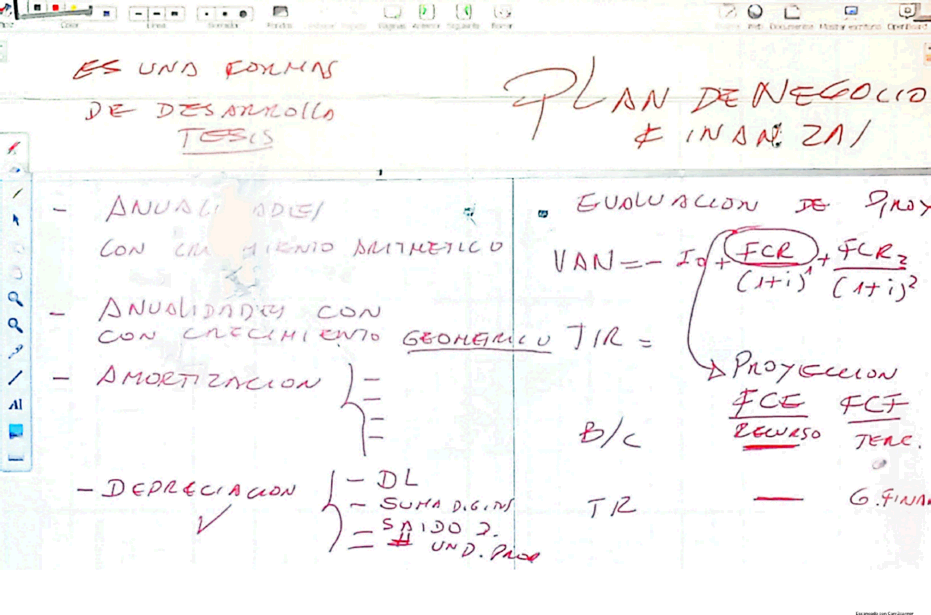 Color
Línea
Borrador
Fondos
Páginas Anterior Siguiente Borrar
Web Documentos Mostrar escritorio OpenBoard
ES UNA FORMAS
DE DESARROLLA
TESIS
PLAN DE NEGOCIO
FINANZAS
- ANUALIDADES
CON CRECIMIENTO ARITMETICO
- ANUALIDADES CON
CON CRECIMIENTO GEOMETRICO
- AMORTIZACION
- DEPRECIACION
- DL
- SUMA DIGITOS
= SALDO D.
= # UND. PROD
EVALUACION DE PROY
VAN = - I0 + FCR/(1+i)^1 + FCR2/(1+i)^2
TIR =
PROYECCION
FCE FCF
B/C RECURSO TERC.
TR — G.FINAN
AI
Escaneado con CamScanner